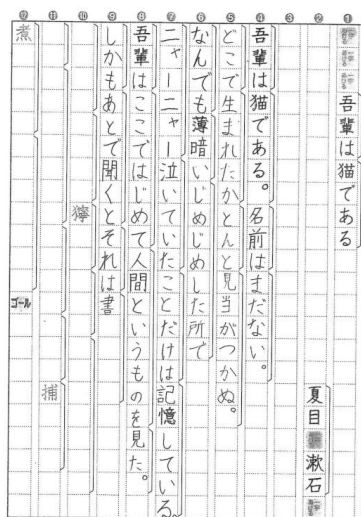 吾輩は猫である
夏目漱石
吾輩は猫である。名前はまだない。
どこで生まれたかとんと見当がつかぬ。
なんでも薄暗いじめじめした所で
ニャーニャー泣いていたことだけは記憶している。
吾輩はここではじめて人間というものを見た。
しかもあとで聞くとそれは書
獰
捕
煮
ゴール